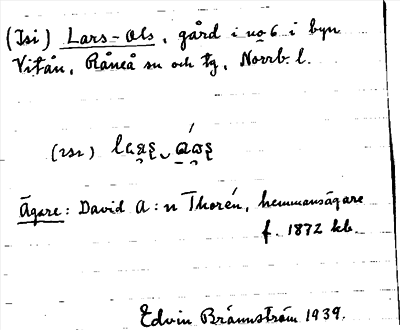 (Isi) Lars-Ols, gård i no 6 i byn
Vitån, Råneå sn och tg, Norrb. l.
Ägare: David A:n Thorén, hemmansägare
f. 1872 kb.
Edvin Brännström 1939.